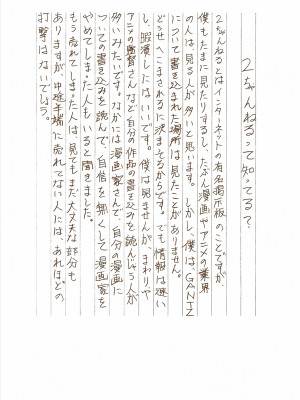 2ちゃんねるって知ってる?
2ちゃんねるとはインターネットの有名掲示板のことですが、
僕もたまに見たりするし、たぶん漫画やアニメの業界
の人は、見る人が多いと思います。しかし、僕は、GANTZ
について書き込まれた場所は見たことがありません。
どうせへこまされるに決まってるからです。でも情報は速い
し、暇潰しにはいいです。僕は見ませんが、まわりや
アニメの監督さんなど自分の作品の書き込みを読んじゃう人が
多いみたいです。なかには漫画家さんで、自分の漫画に
ついての書き込みを読んで、自信を無くして漫画家を
やめてしまった人もいると聞きました。
もう売れてしまった人は、見てもまだ大丈夫な部分も
ありますが、中途半端に売れてない人には、あれほどの
打撃はないでしょう。